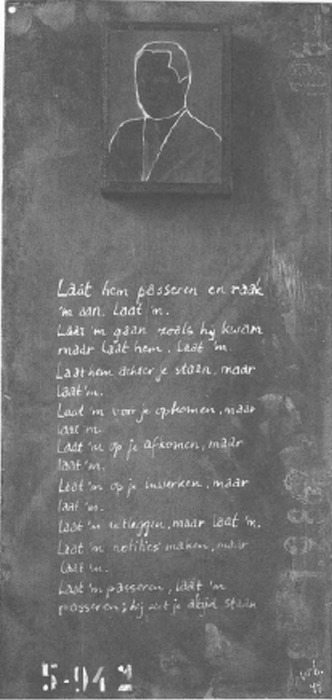 Laat hem passeren en raak
'm aan. Laat 'm.
Laat 'm gaan zoals hij kwam
maar laat hem. Laat 'm.
Laat hem achter je staan, maar
laat 'm.
Laat 'm voor je opkomen, maar
laat 'm.
Laat 'm op je afkomen, maar
laat 'm.
Laat 'm op je inwerken, maar
laat 'm.
Laat 'm uitleggen, maar laat 'm.
Laat 'm notities maken, maar
laat 'm.
Laat 'm passeren, laat 'm
passeren; hij ziet je altijd staan
5-942